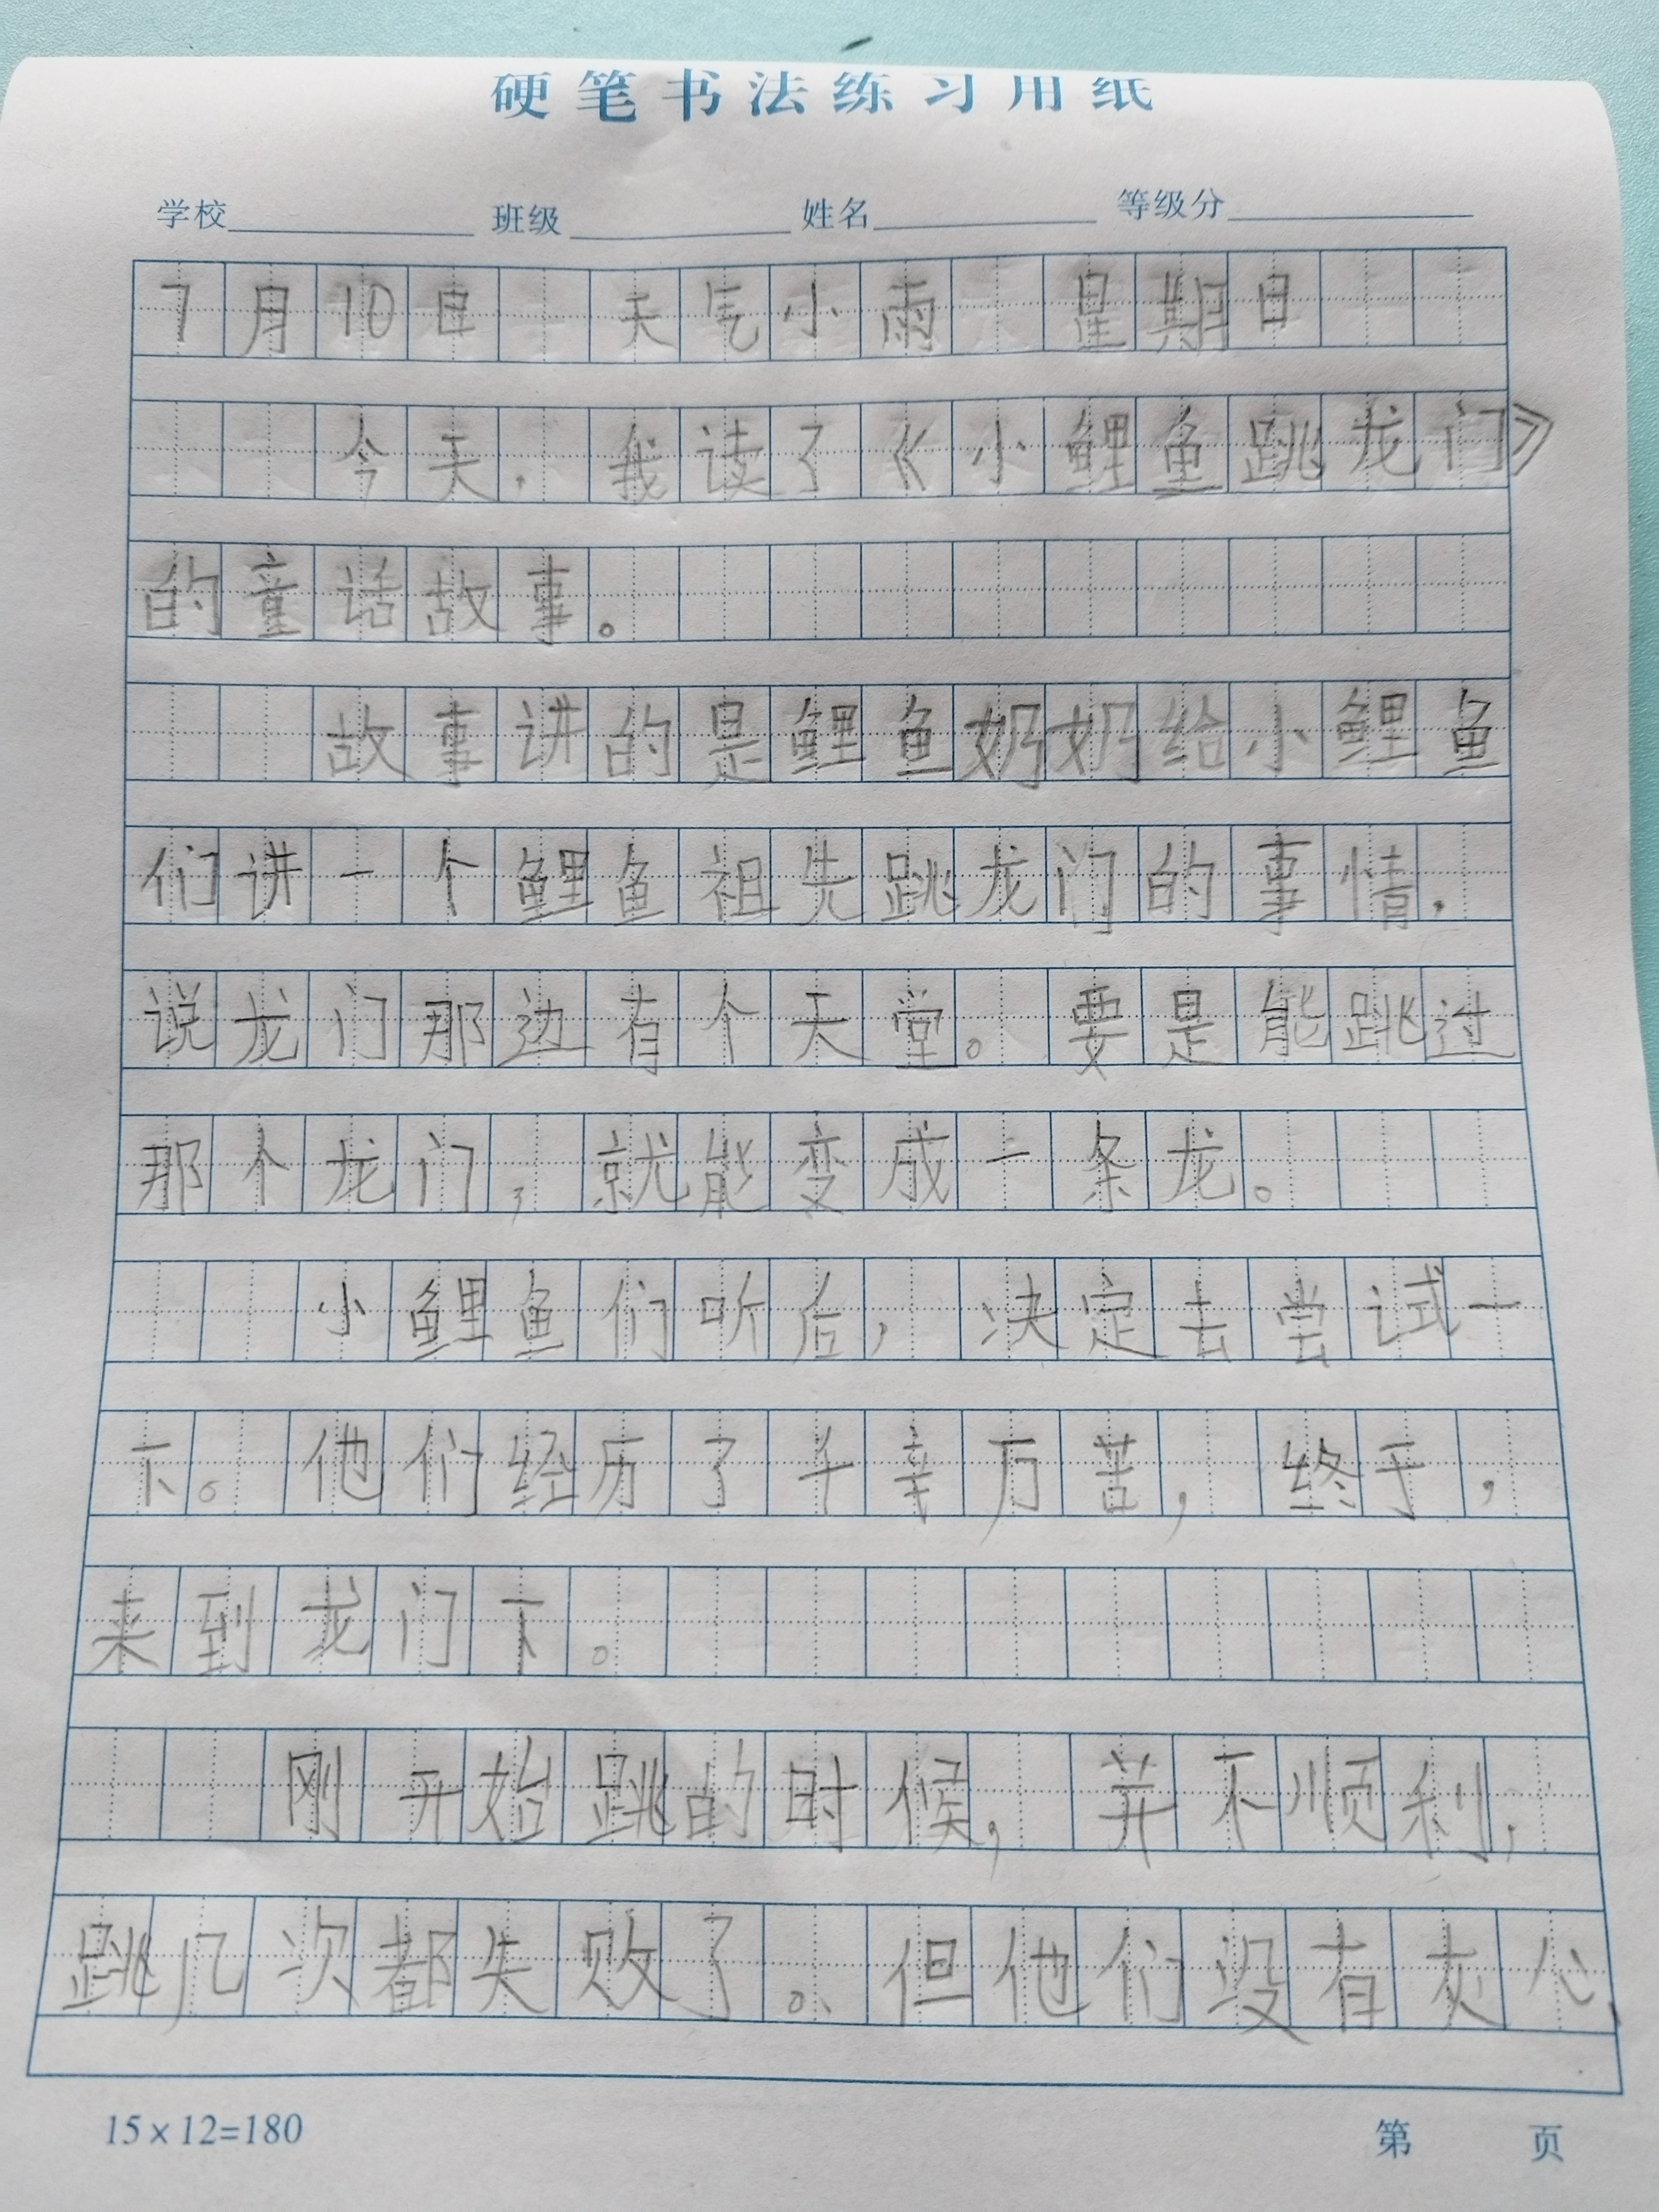 硬笔书法练习用纸
学校 班级 姓名 等级分
7月10日 天气小雨 星期日
今天，我读了《小鲤鱼跳龙门》
的童话故事。
故事讲的是鲤鱼奶奶给小鲤鱼
们讲一个鲤鱼祖先跳龙门的事情，
说龙门那边有个天堂。要是能跳过
那个龙门，就能变成一条龙。
小鲤鱼们听后，决定去尝试一
下。他们经历了千辛万苦，终于，
来到龙门下。
刚开始跳的时候，并不顺利，
跳几次都失败了。但他们没有灰心，
15×12=180
第 页